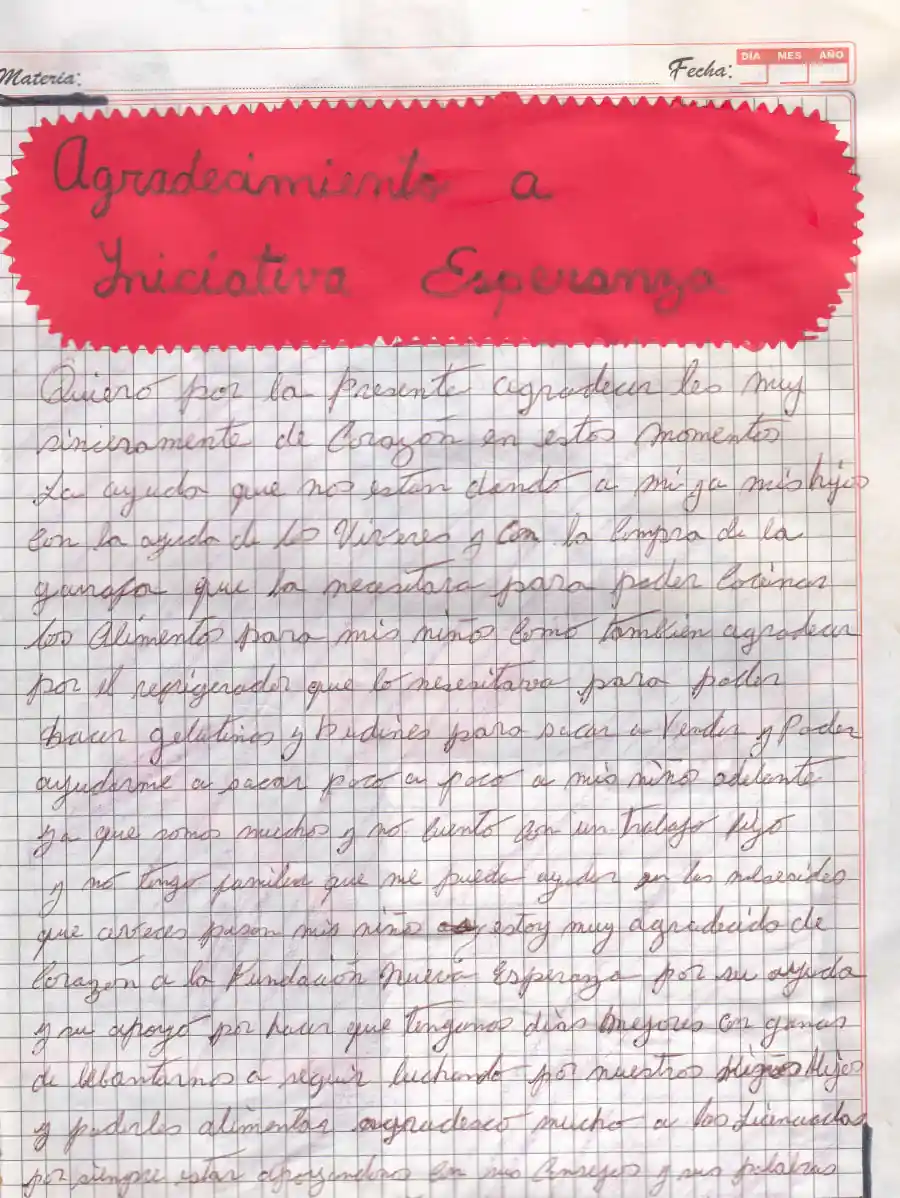 Materia:
Fecha:
DÍA MES AÑO
Agradecimiento a
Iniciativa Esperanza
Quiero por la presente agradecer les muy
sinceramente de Corazón en estos momentos
La ayuda que nos estan dando a mi ya mis hijos
con la ayuda de los Viveres y con la compra de la
garrafa que la necesitaba para poder cocinar
los alimentos para mis niños como tambien agradecer
por el refrigerador que lo nesesitava para poder
hacer gelatinas y budines para sacar a vender y poder
ayudarme a sacar poco a poco a mis niño adelante
ya que somos muchos y no cuento con un trabajo fijo
y no tengo familia que me pueda ayudar en las
que aveces pasan mis niño y estoy muy agradecida de
corazón a la Fundación nueva Esperanza por su ayuda
y su apoyo por hacer que tengamos dias mejores con ganas
de lebantarnos a seguir luchando por nuestros Hijos
y poderles alimentar agradesco mucho a las Licenciadas
por siempre estar apoyandnos en sus consejos y sus palabras